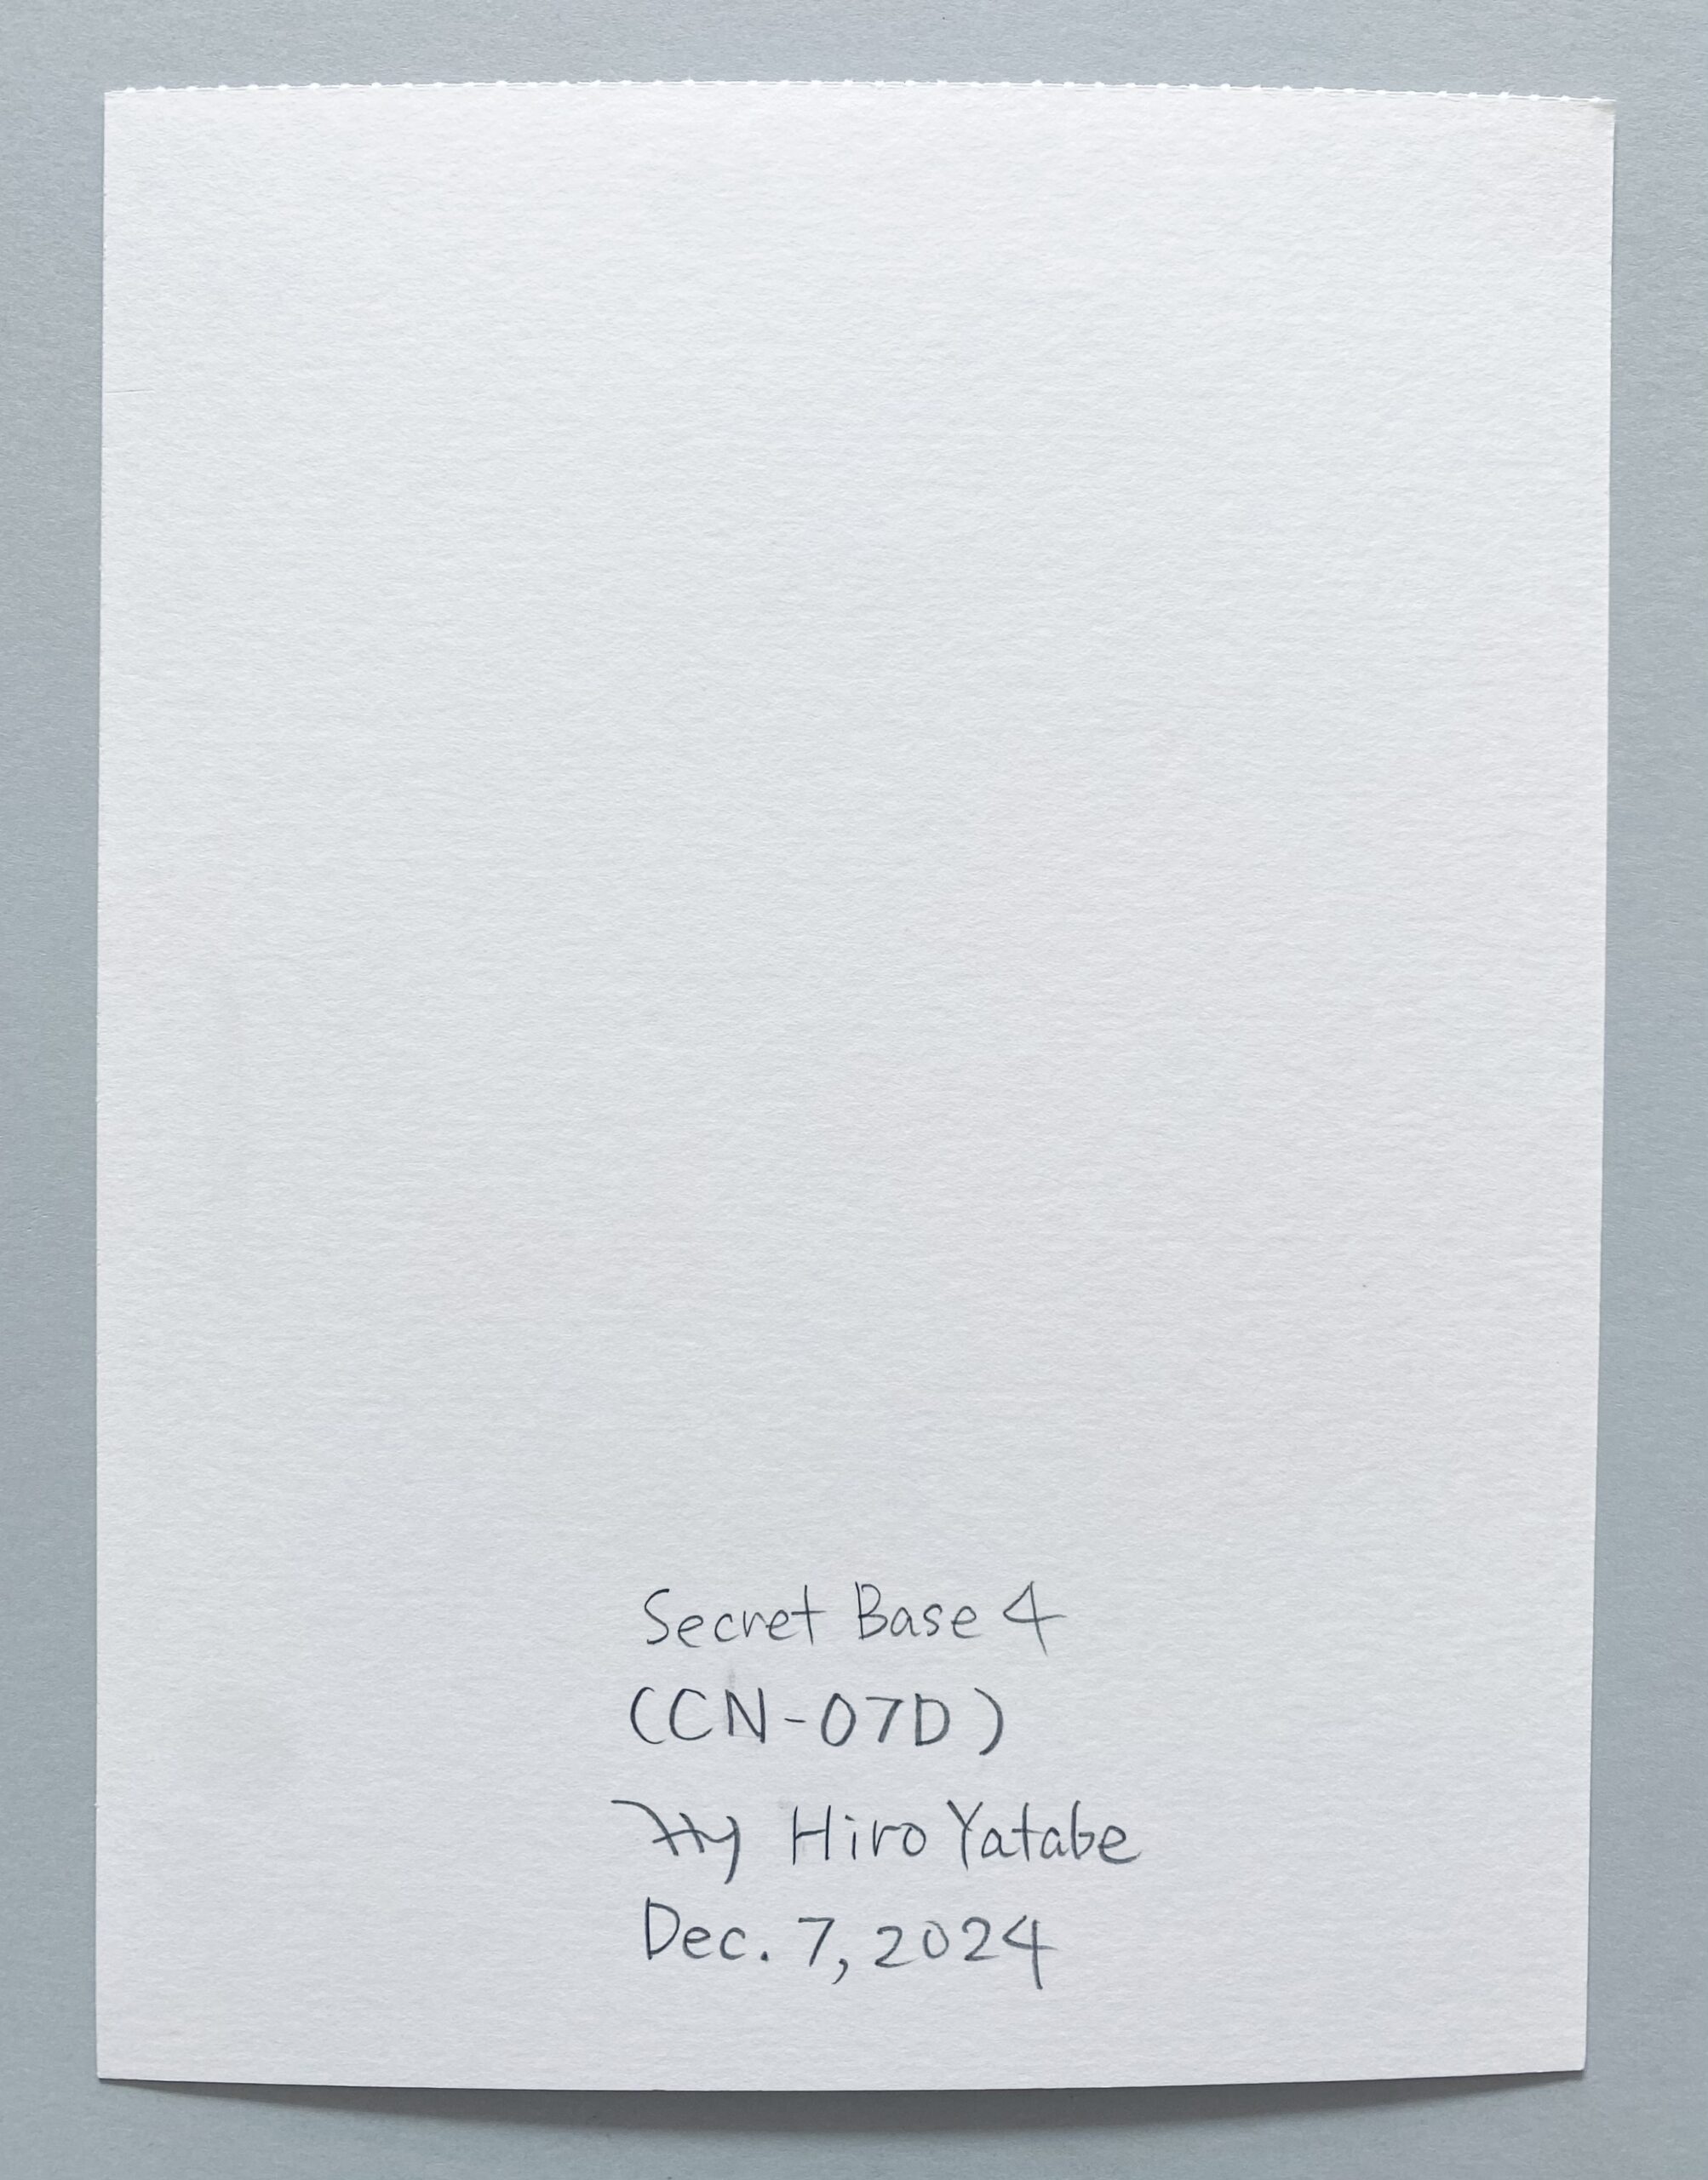 Secret Base 4
(CN-07D)
Hiro Yatabe
Dec. 7, 2024